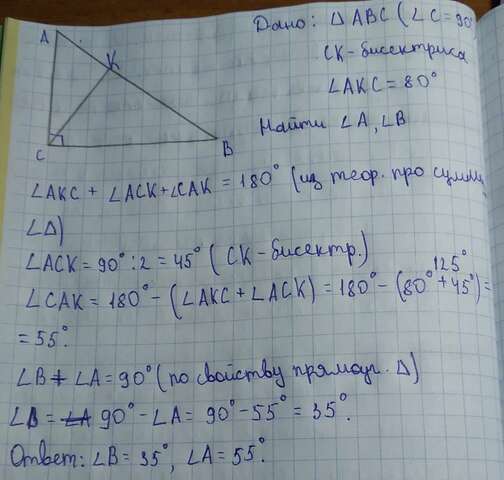 A
K
C
B
Дано: △ABC (∠C=90°
CK-биссектриса
∠AKC=80°
Найти ∠A, ∠B
∠AKC + ∠ACK+∠CAK = 180° (из теор. про суммы
∠△)
∠ACK = 90°:2 = 45° (CK-биссектр.)
125°
∠CAK = 180° - (∠AKC + ∠ACK) = 180° - (80°+45°) =
= 55°.
∠B + ∠A = 90° (по свойству прямоуг. △)
∠B = 90° - ∠A = 90° - 55° = 35°.
Ответ: ∠B = 35°, ∠A = 55°.